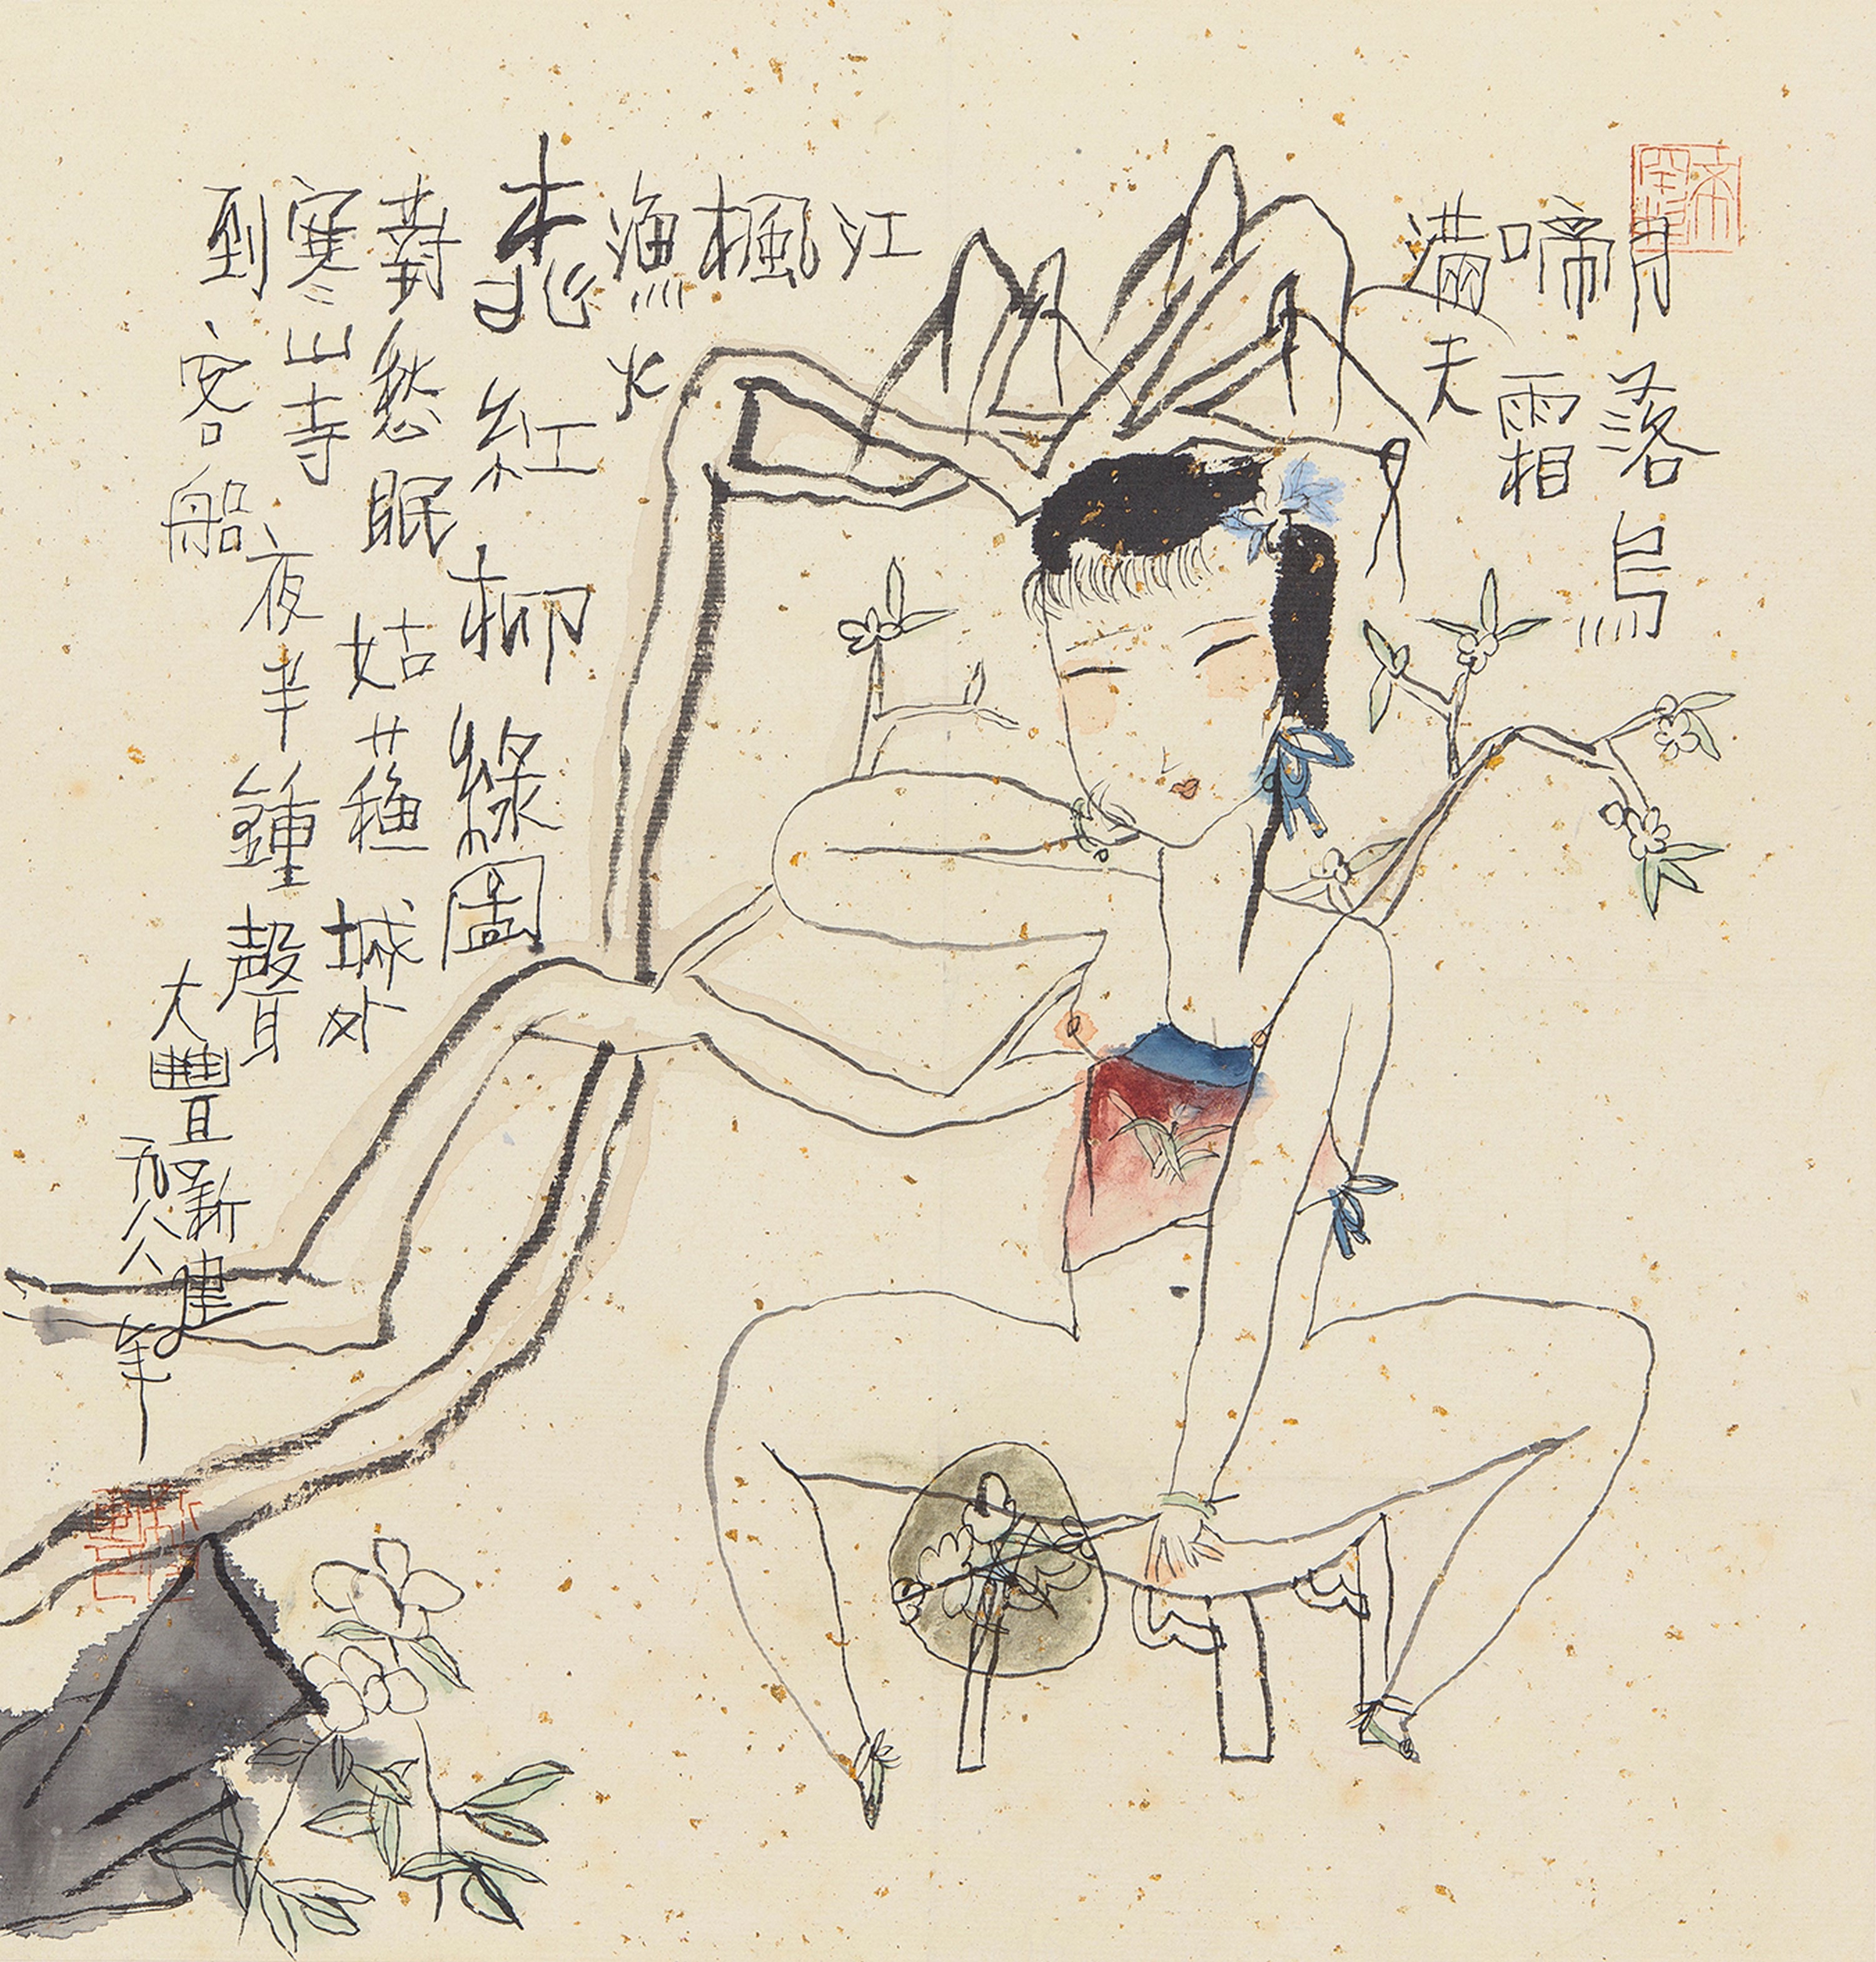 月落烏
啼霜
滿夫
江
楓
漁火
桃紅柳綠圖
對愁眠姑蘓城外
寒山寺夜半鍾聲
到客船
大豐新建
一九八八年